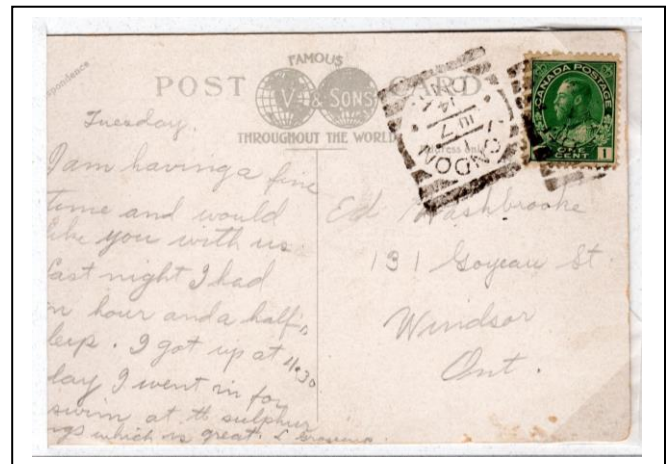 pondence
FAMOUS
POST CARD
V & SONS
THROUGHOUT THE WORLD
Address only
LONDON
JUL 7
14
CANADA POSTAGE
ONE CENT 1
Tuesday.
I am having a fine
time and would
like you with us
Last night I had
n hour and a half's
leep. I got up at 11.30
day I went in for
swim at th sulphur
ngs which is great. L
Ed Washbrooke
131 Goyeau St.
Windsor
Ont.